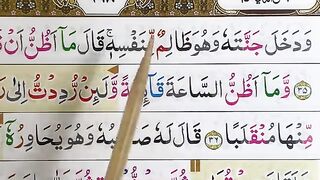 وَدَخَلَ جَنَّتَهٗ وَهُوَ ظَالِمٌ لِّنَفْسِهٖ ۚ قَالَ مَاۤ اَظُنُّ اَنْ
۳۵ وَّمَاۤ اَظُنُّ السَّاعَةَ قَآئِمَةً وَّلَئِنْ رُّدِدْتُّ اِلٰى
مِّنْهَا مُنْقَلَبًا ۳۶ قَالَ لَهٗ صَاحِبُهٗ وَهُوَ يُحَاوِرُهٗۤ